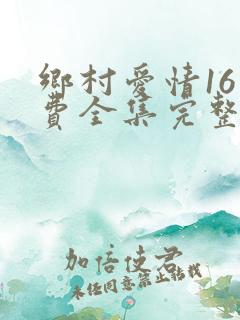 鄉村愛情16
費全集完整
加倍使君
未任同意禁止转载